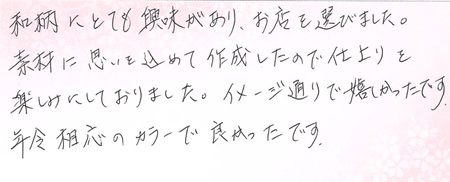 和柄にとても興味があり、お店を選びました。
素材に思いを込めて作成したので仕上りを
楽しみにしておりました。イメージ通りで嬉しかったです。
年令相応のカラーで良かったです。